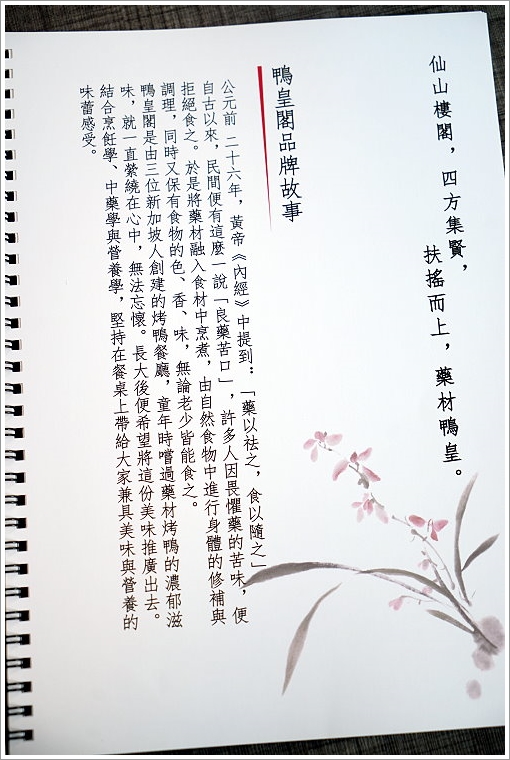 仙山樓閣，四方集賢，
扶搖而上，藥材鴨皇。
鴨皇閣品牌故事
公元前 二十六年，黃帝《內經》中提到：「藥以祛之，食以隨之」
自古以來，民間便有這麼一說「良藥苦口」，許多人因畏懼藥的苦味，便
拒絕食之。於是將藥材融入食材中烹煮，由自然食物中進行身體的修補與
調理，同時又保有食物的色、香、味，無論老少皆能食之。
鴨皇閣是由三位新加坡人創建的烤鴨餐廳，童年時嚐過藥材烤鴨的濃郁滋
味，就一直縈繞在心中，無法忘懷。長大後便希望將這份美味推廣出去。
結合烹飪學、中藥學與營養學，堅持在餐桌上帶給大家兼具美味與營養的
味蕾感受。